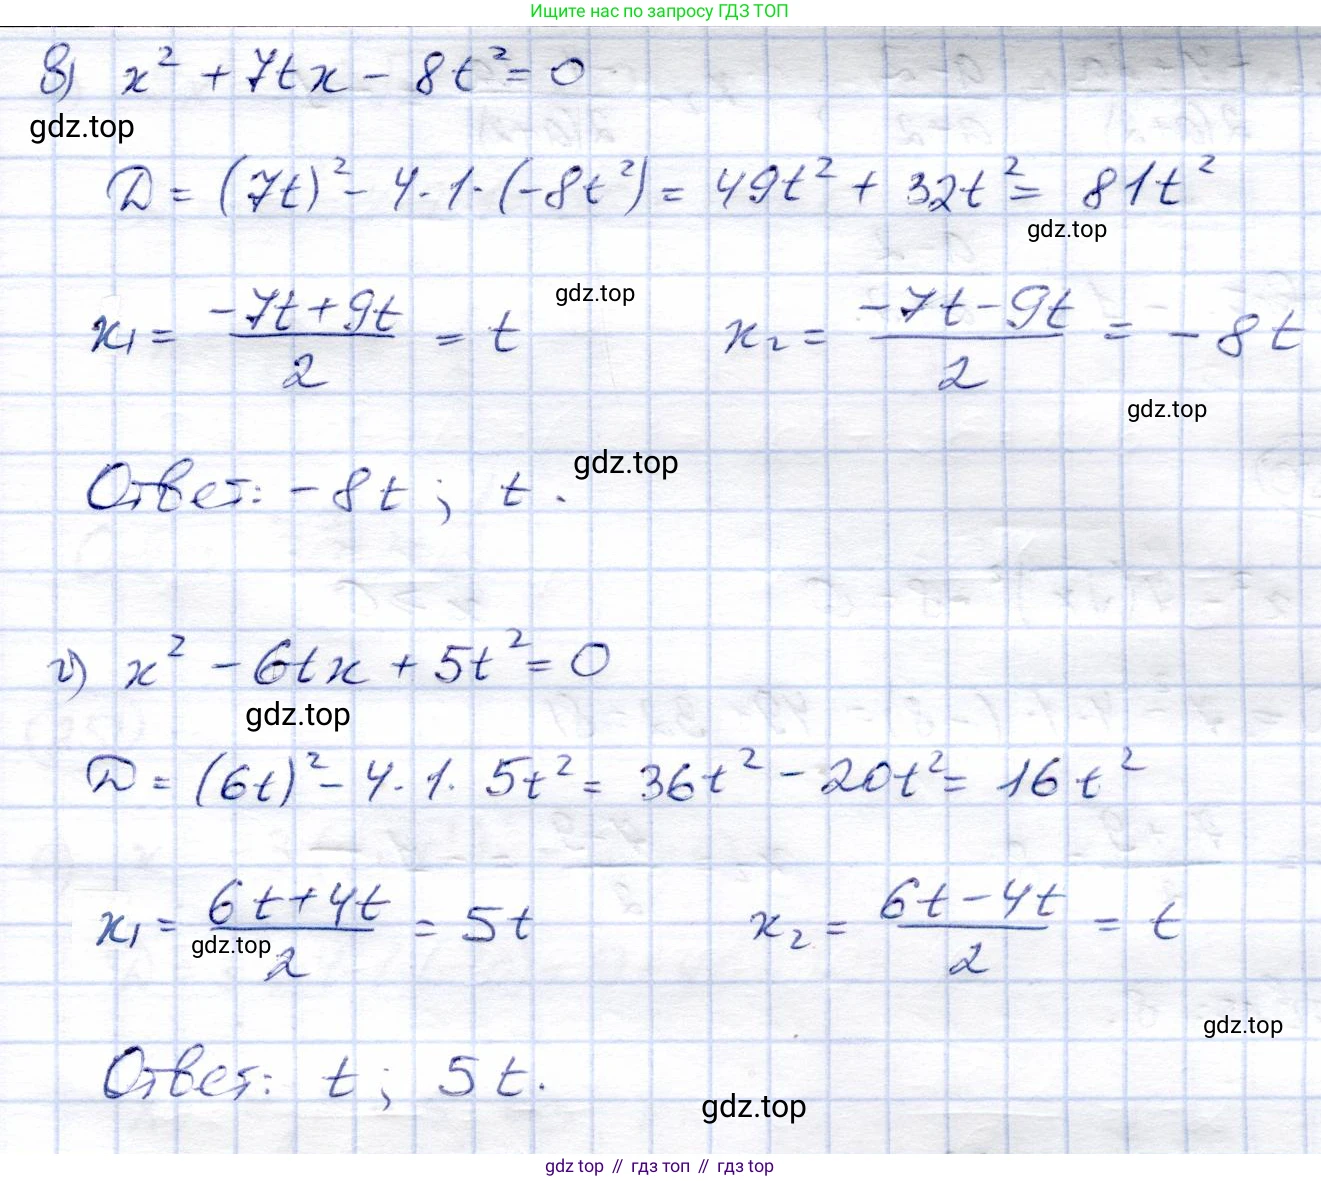 Ищите нас по запросу ГДЗ ТОП
в) x² + 7tx - 8t² = 0
gdz.top
D = (7t)² - 4·1·(-8t²) = 49t² + 32t² = 81t²
gdz.top
gdz.top
x₁ = (-7t+9t)/2 = t x₂ = (-7t-9t)/2 = -8t
gdz.top
gdz.top
Ответ: -8t; t.
г) x² - 6tx + 5t² = 0
gdz.top
D = (6t)² - 4·1·5t² = 36t² - 20t² = 16t²
x₁ = (6t+4t)/2 = 5t x₂ = (6t-4t)/2 = t
gdz.top
gdz.top
Ответ: t; 5t.
gdz.top
gdz top // гдз топ // gdz top